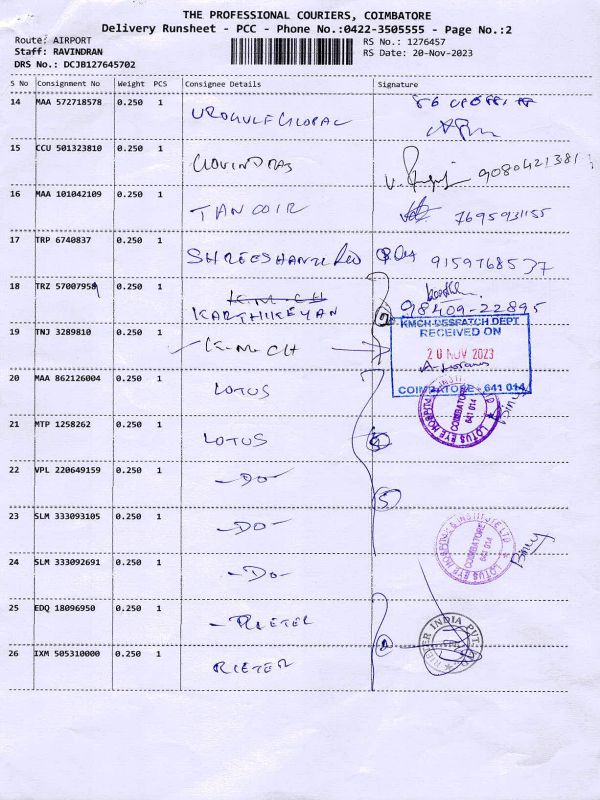 THE PROFESSIONAL COURIERS, COIMBATORE
Delivery Runsheet - PCC - Phone No.:0422-3505555 - Page No.:2
Route: AIRPORT
Staff: RAVINDRAN
DRS No.: DCJB127645702
RS No.: 1276457
RS Date: 20-Nov-2023
S No Consignment No Weight PCS Consignee Details Signature
14 MAA 572718578 0.250 1
15 CCU 501323810 0.250 1 GOVINDRAJ 9080421381
16 MAA 101042109 0.250 1 TANCOIR 7695931155
17 TRP 6740837 0.250 1 9159768537
18 TRZ 57007959 0.250 1 K.M.CH
KARTHIKEYAN 98409-22895
19 TNJ 3289810 0.250 1 K.M.CH
KMCH DESPATCH DEPT.
RECEIVED ON
20 NOV 2023
COIMBATORE - 641 014
20 MAA 862126004 0.250 1 LOTUS
LOTUS EYE HOSPITAL & INSTITUTE LTD
COIMBATORE
641 014
21 MTP 1258262 0.250 1 LOTUS
22 VPL 220649159 0.250 1 -DO-
5
23 SLM 333093105 0.250 1 -DO-
LOTUS EYE HOSPITAL & INSTITUTE LTD
COIMBATORE
641 014
24 SLM 333092691 0.250 1 -DO-
25 EDQ 18096950 0.250 1 -RIETER
2
RIETER INDIA PVT.
26 IXM 505310000 0.250 1 RIETER